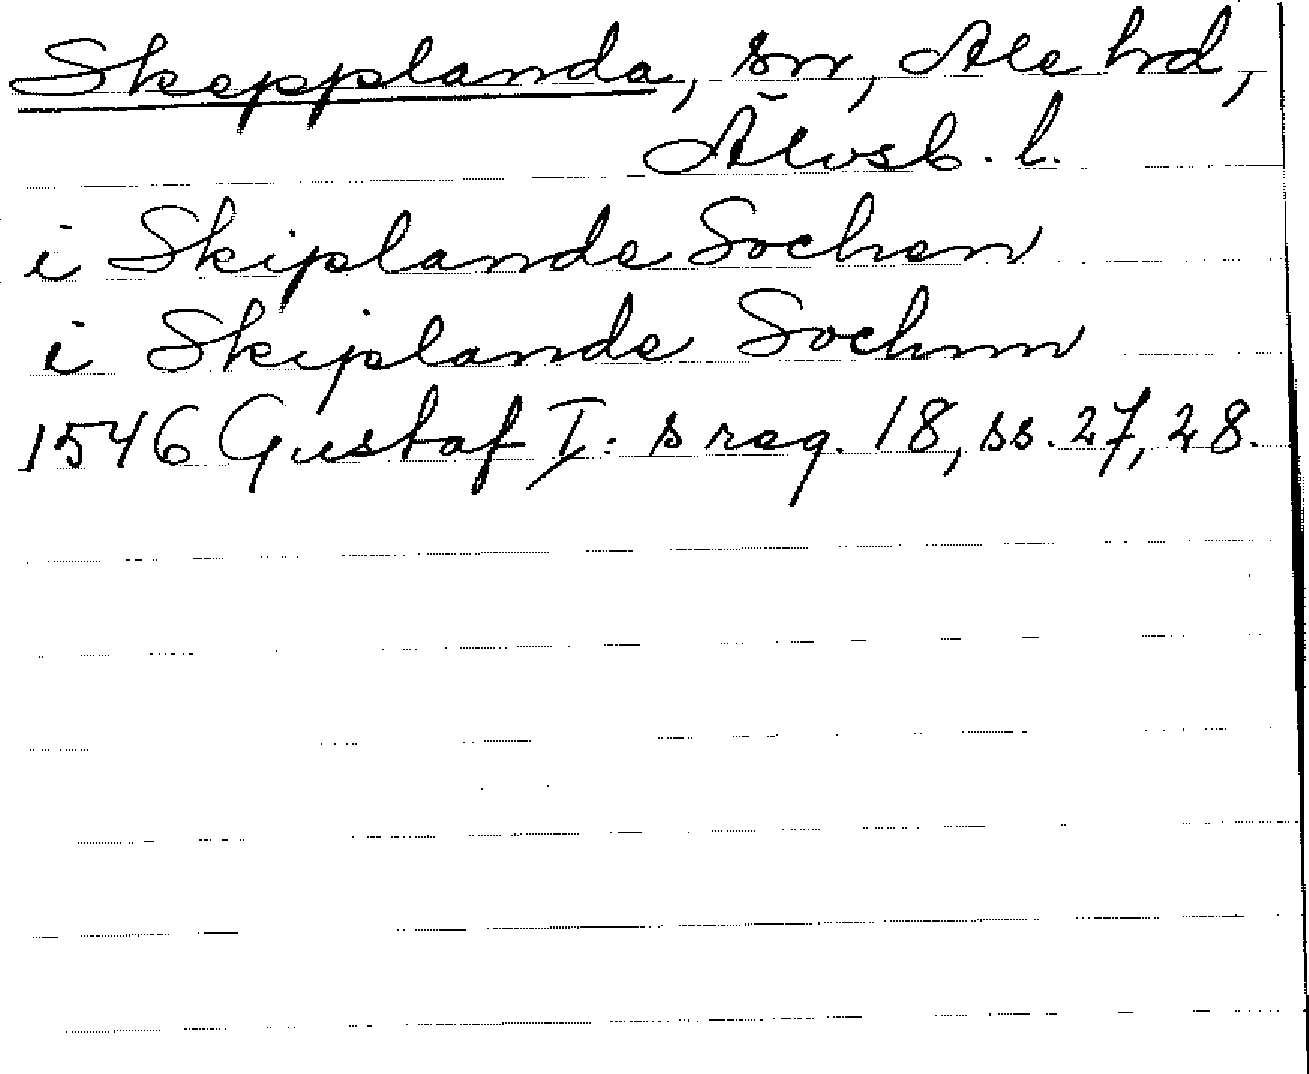 Skepplanda, sn, Ale hd,
Älvsb. l.
i Skiplande Sochen
i Skiplande Sochnn
1546 Gustaf I: s reg. 18, ss. 27, 28.